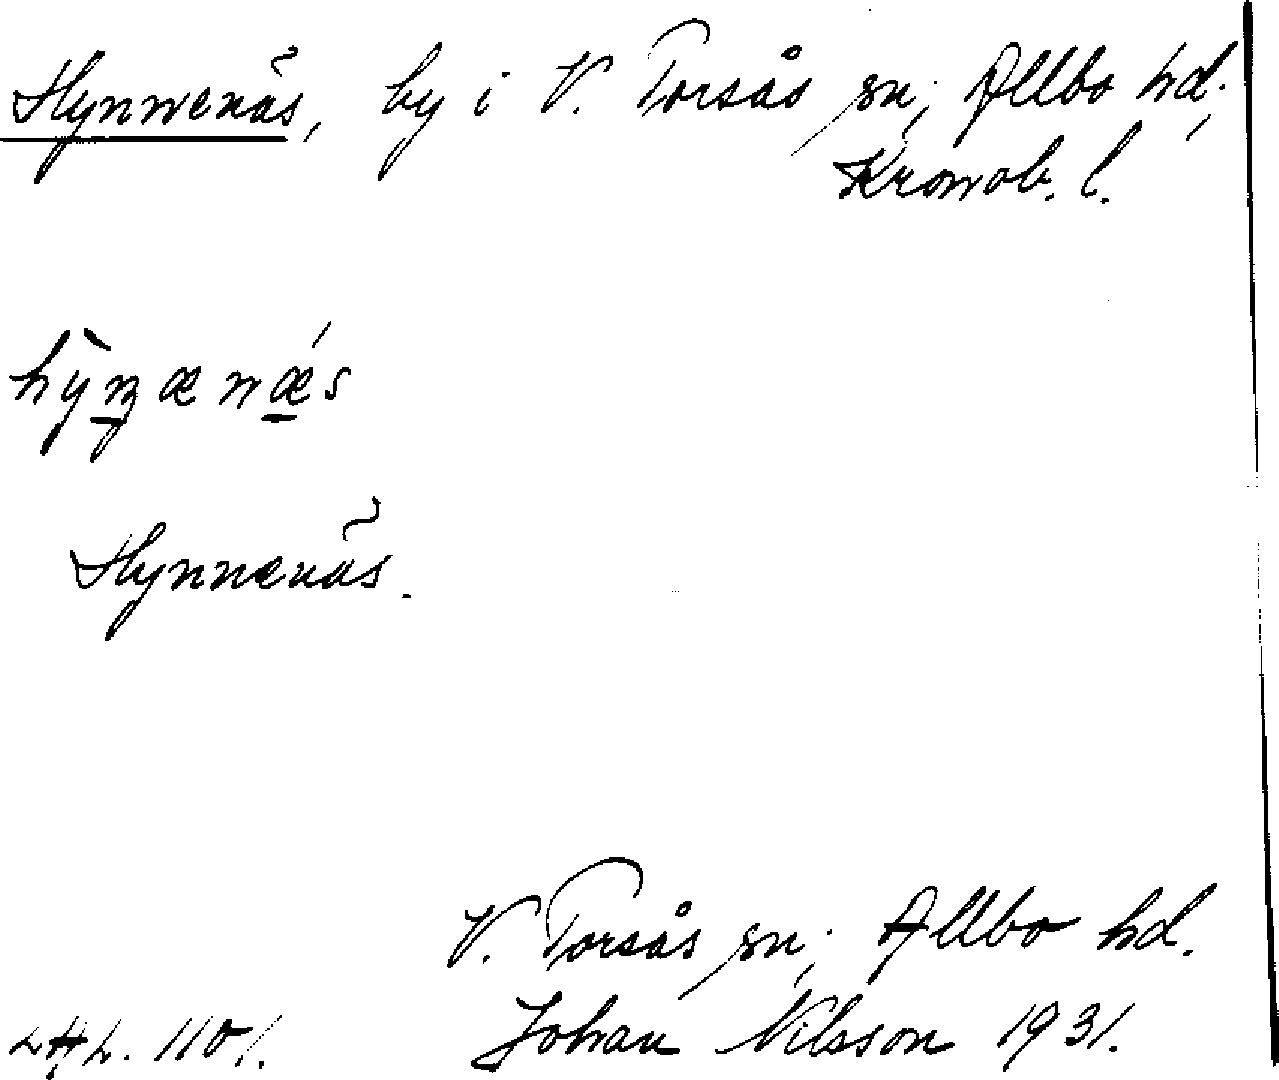 Hynnenäs, by i V. Torsås sn; Allbo hd.,
Kronob. l.
Hynnenäs.
V. Torsås sn; Allbo hd.
Johan Nilsson 1931.